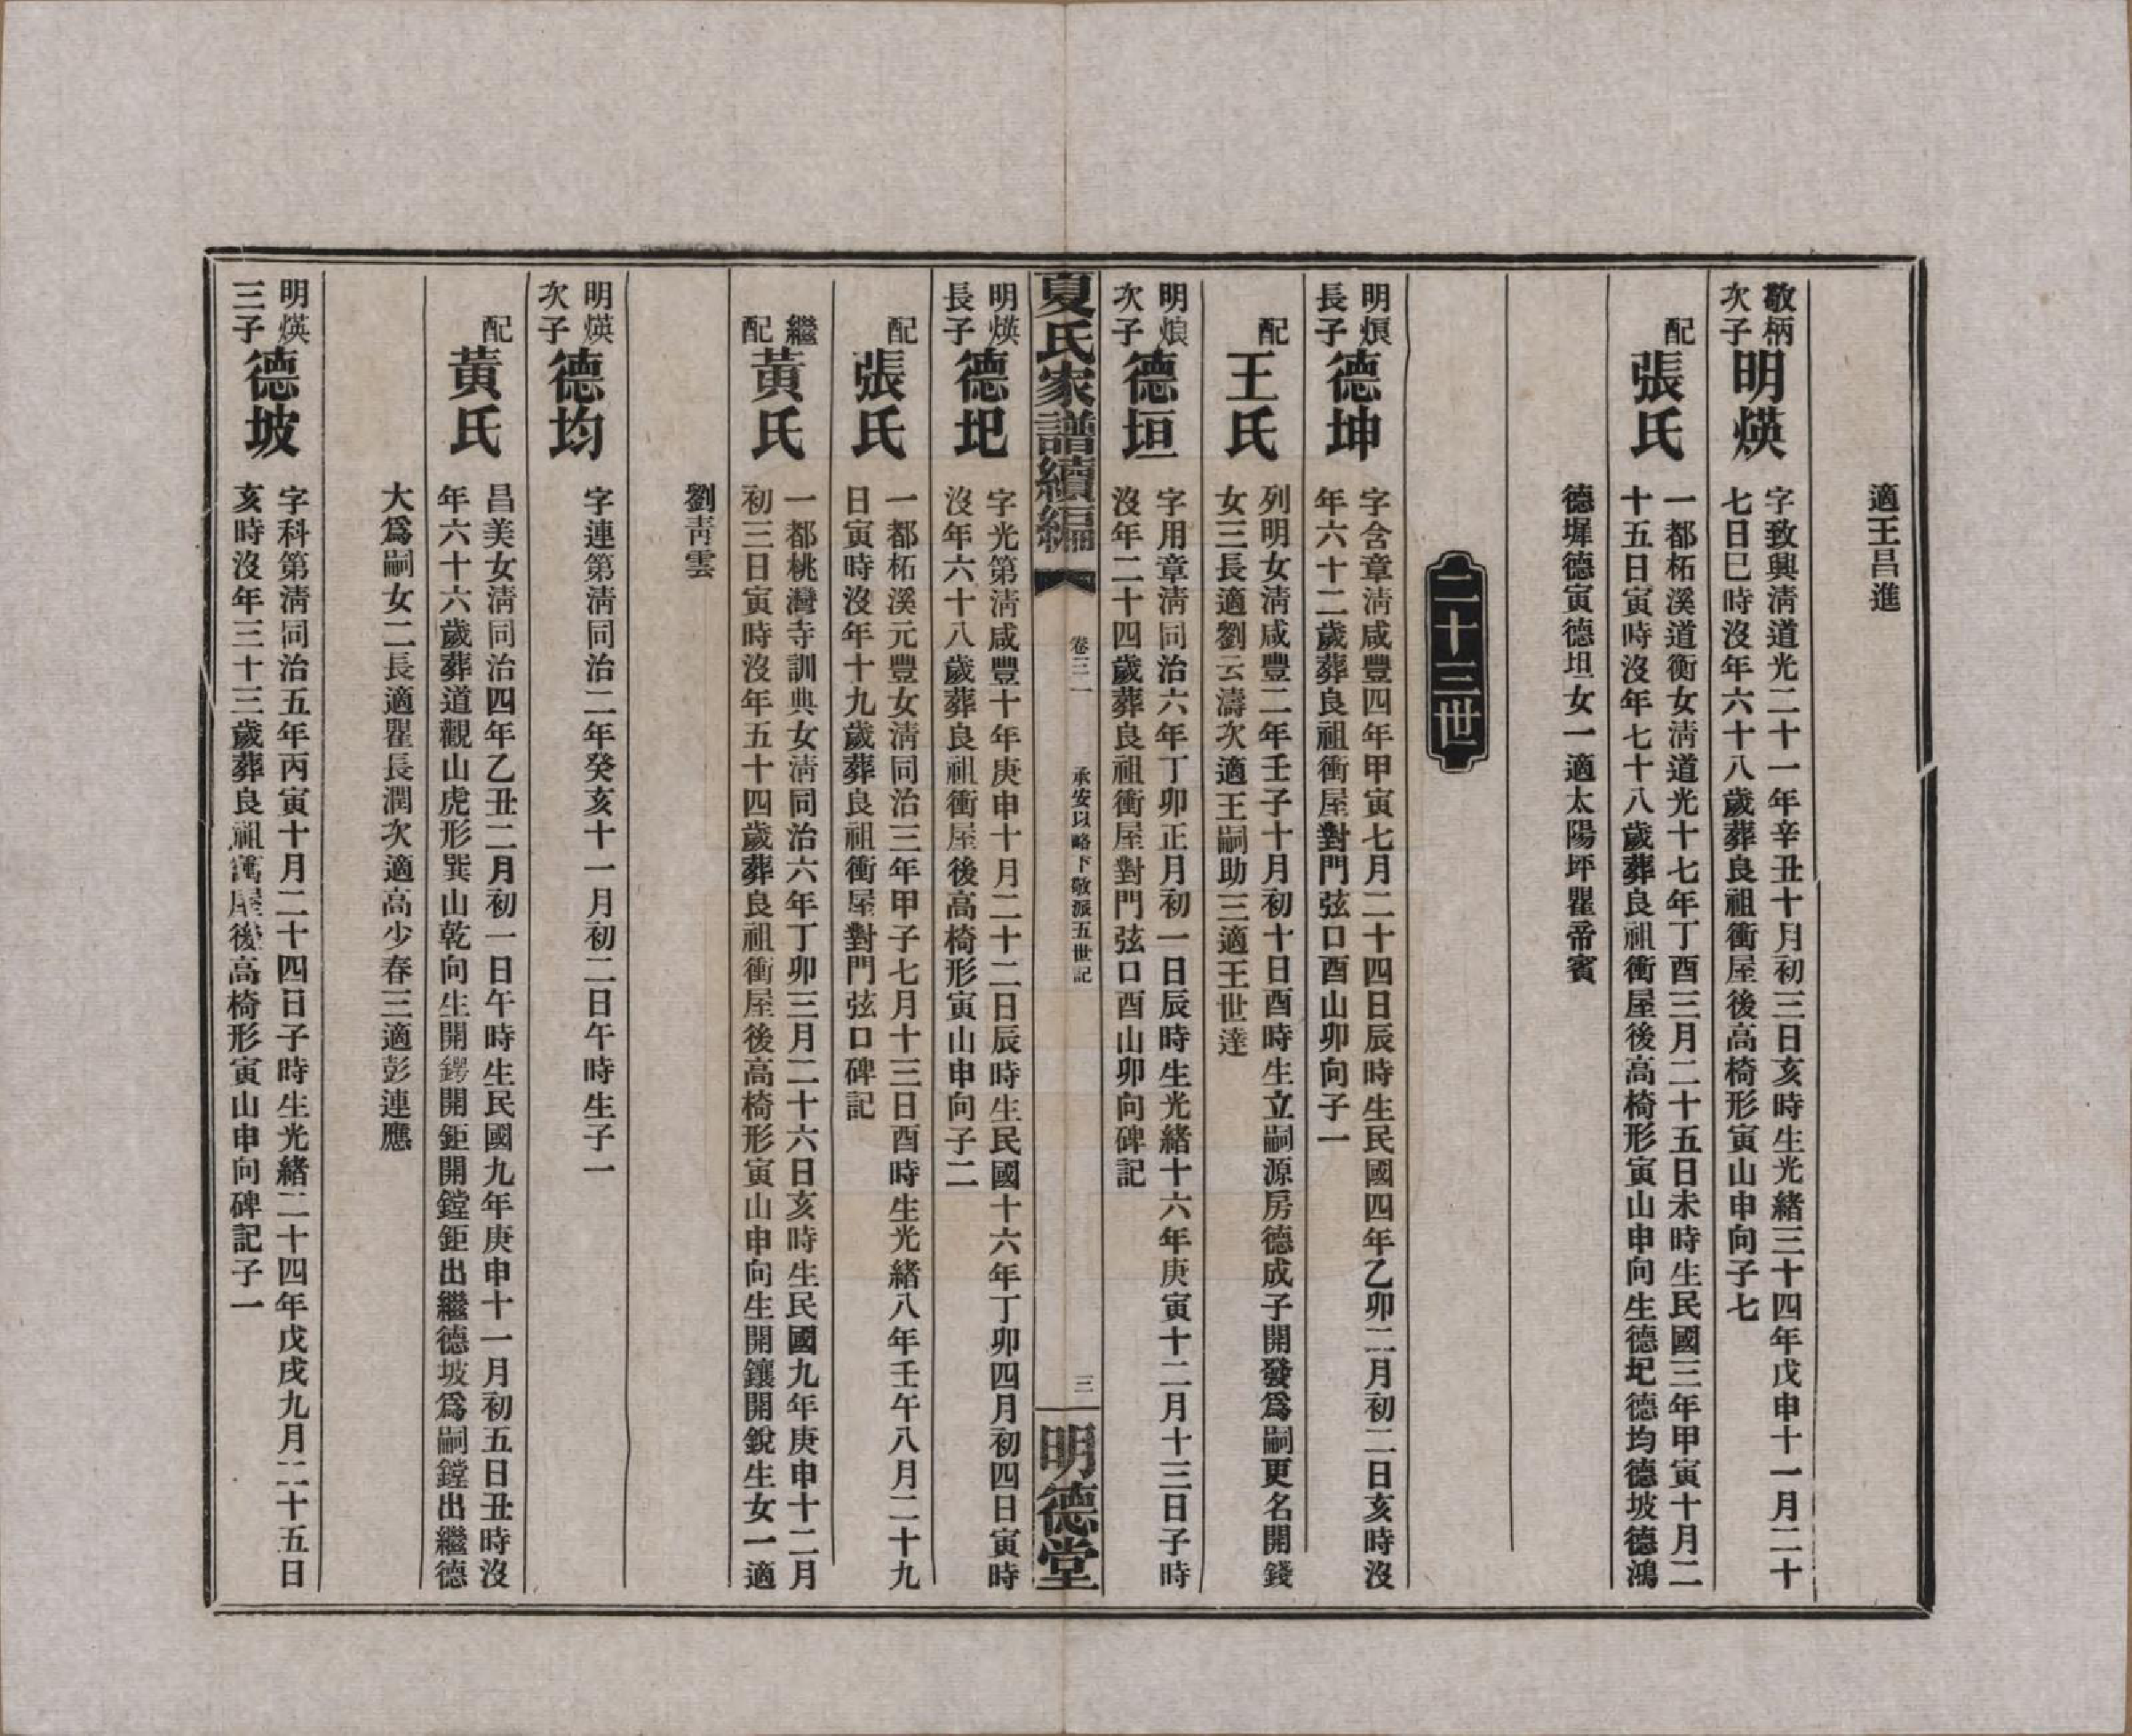 適王昌進
敬柄次子
明煐
字致興淸道光二十一年辛丑十月初三日亥時生光緒三十四年戊申十一月二十
七日巳時沒年六十八歲葬良祖衝屋後高椅形寅山申向子七
配
張氏
一都柘溪道衡女淸道光十七年丁酉三月二十五日未時生民國三年甲寅十月二
十五日寅時沒年七十八歲葬良祖衝屋後高椅形寅山申向生德圯德均德坡德鴻
德墀德寅德坦女一適太陽坪瞿帝賓
二十三世
明烺長子
德坤
字含章淸咸豐四年甲寅七月二十四日辰時生民國四年乙卯二月初二日亥時沒
年六十二歲葬良祖衝屋對門弦口酉山卯向子一
配
王氏
列明女淸咸豐二年壬子十月初十日酉時生立嗣源房德成子開發爲嗣更名開錢
女三長適劉云濤次適王嗣助三適王世達
明烺次子
德垣
字用章淸同治六年丁卯正月初一日辰時生光緒十六年庚寅十二月十三日子時
沒年二十四歲葬良祖衝屋對門弦口酉山卯向碑記
夏氏家譜續編
卷三一
承安以略下敬派五世記
三
明德堂
明煐長子
德圯
字光第淸咸豐十年庚申十月二十二日辰時生民國十六年丁卯四月初四日寅時
沒年六十八歲葬良祖衝屋後高椅形寅山申向子二
配
張氏
一都柘溪元豐女淸同治三年甲子七月十三日酉時生光緒八年壬午八月二十九
日寅時沒年十九歲葬良祖衝屋對門弦口碑記
繼配
黃氏
一都桃灣寺訓典女淸同治六年丁卯三月二十六日亥時生民國九年庚申十二月
初三日寅時沒年五十四歲葬良祖衝屋後高椅形寅山申向生開鑲開銳生女一適
劉靑雲
明煐次子
德均
字連第淸同治二年癸亥十一月初二日午時生子一
配
黃氏
昌美女淸同治四年乙丑二月初一日午時生民國九年庚申十一月初五日丑時沒
年六十六歲葬道觀山虎形巽山乾向生開鍔開鉅開鏜鉅出繼德坡爲嗣鏜出繼德
大爲嗣女二長適瞿長潤次適高少春三適彭連應
明煐三子
德坡
字科第淸同治五年丙寅十月二十四日子時生光緒二十四年戊戌九月二十五日
亥時沒年三十三歲葬良祖衝屋後高椅形寅山申向碑記子一